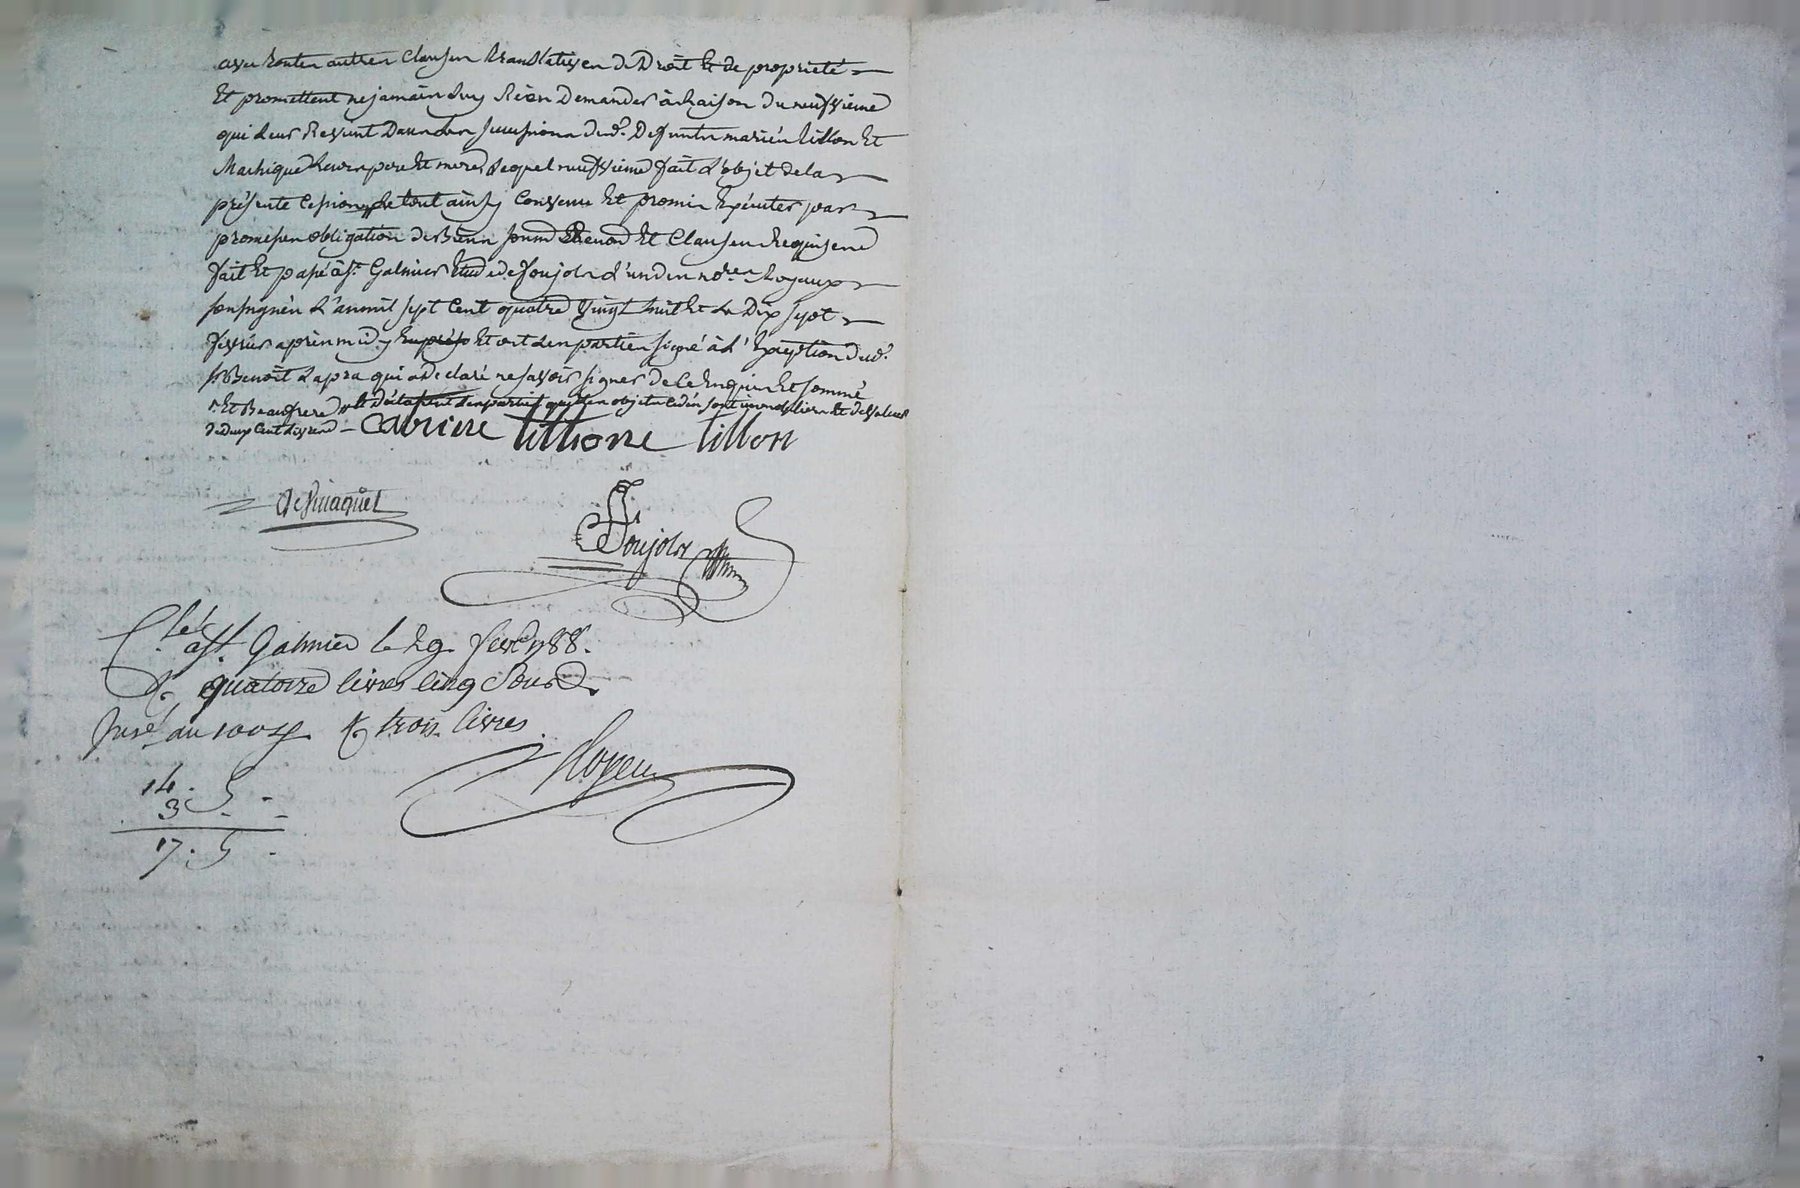 avec toutes autres clauses translatives de Droit et de propriété
Et promettent ne jamais luy Rien Demander à Raison du neufvieme
qui leur Revient Dans les successions desd. Defunts mariés tillon Et
leurs pere Et mere, lequel neufvieme fait l'objet de la
présente Cession, le tout ainsy Convenu Et promis Exécuter par
promesses obligation de Biens et Clauses Requises
fait Et passé à St. Galmier Etude de foujols l'un des nores Royaux
soussignés l'an mil sept Cent quatre vingt huit Et le Dix sept
fevrier après midy Et ont les parties signé à L'Exception dud.
sr Benoit Lapra qui a declaré ne savoir signer de ce Enquis Et sommé
r. Et Beaufrere les parties que les objets cédés sont Et de valeur
de deux Cent livres - Cabriere tillone tillon
foujols
Clé à St. Galmier le 29 fevr 1788.
R. quatorze livres Cinq Sous
au 100 R. trois livres
14. 5 -
3 - -
17. 5 -